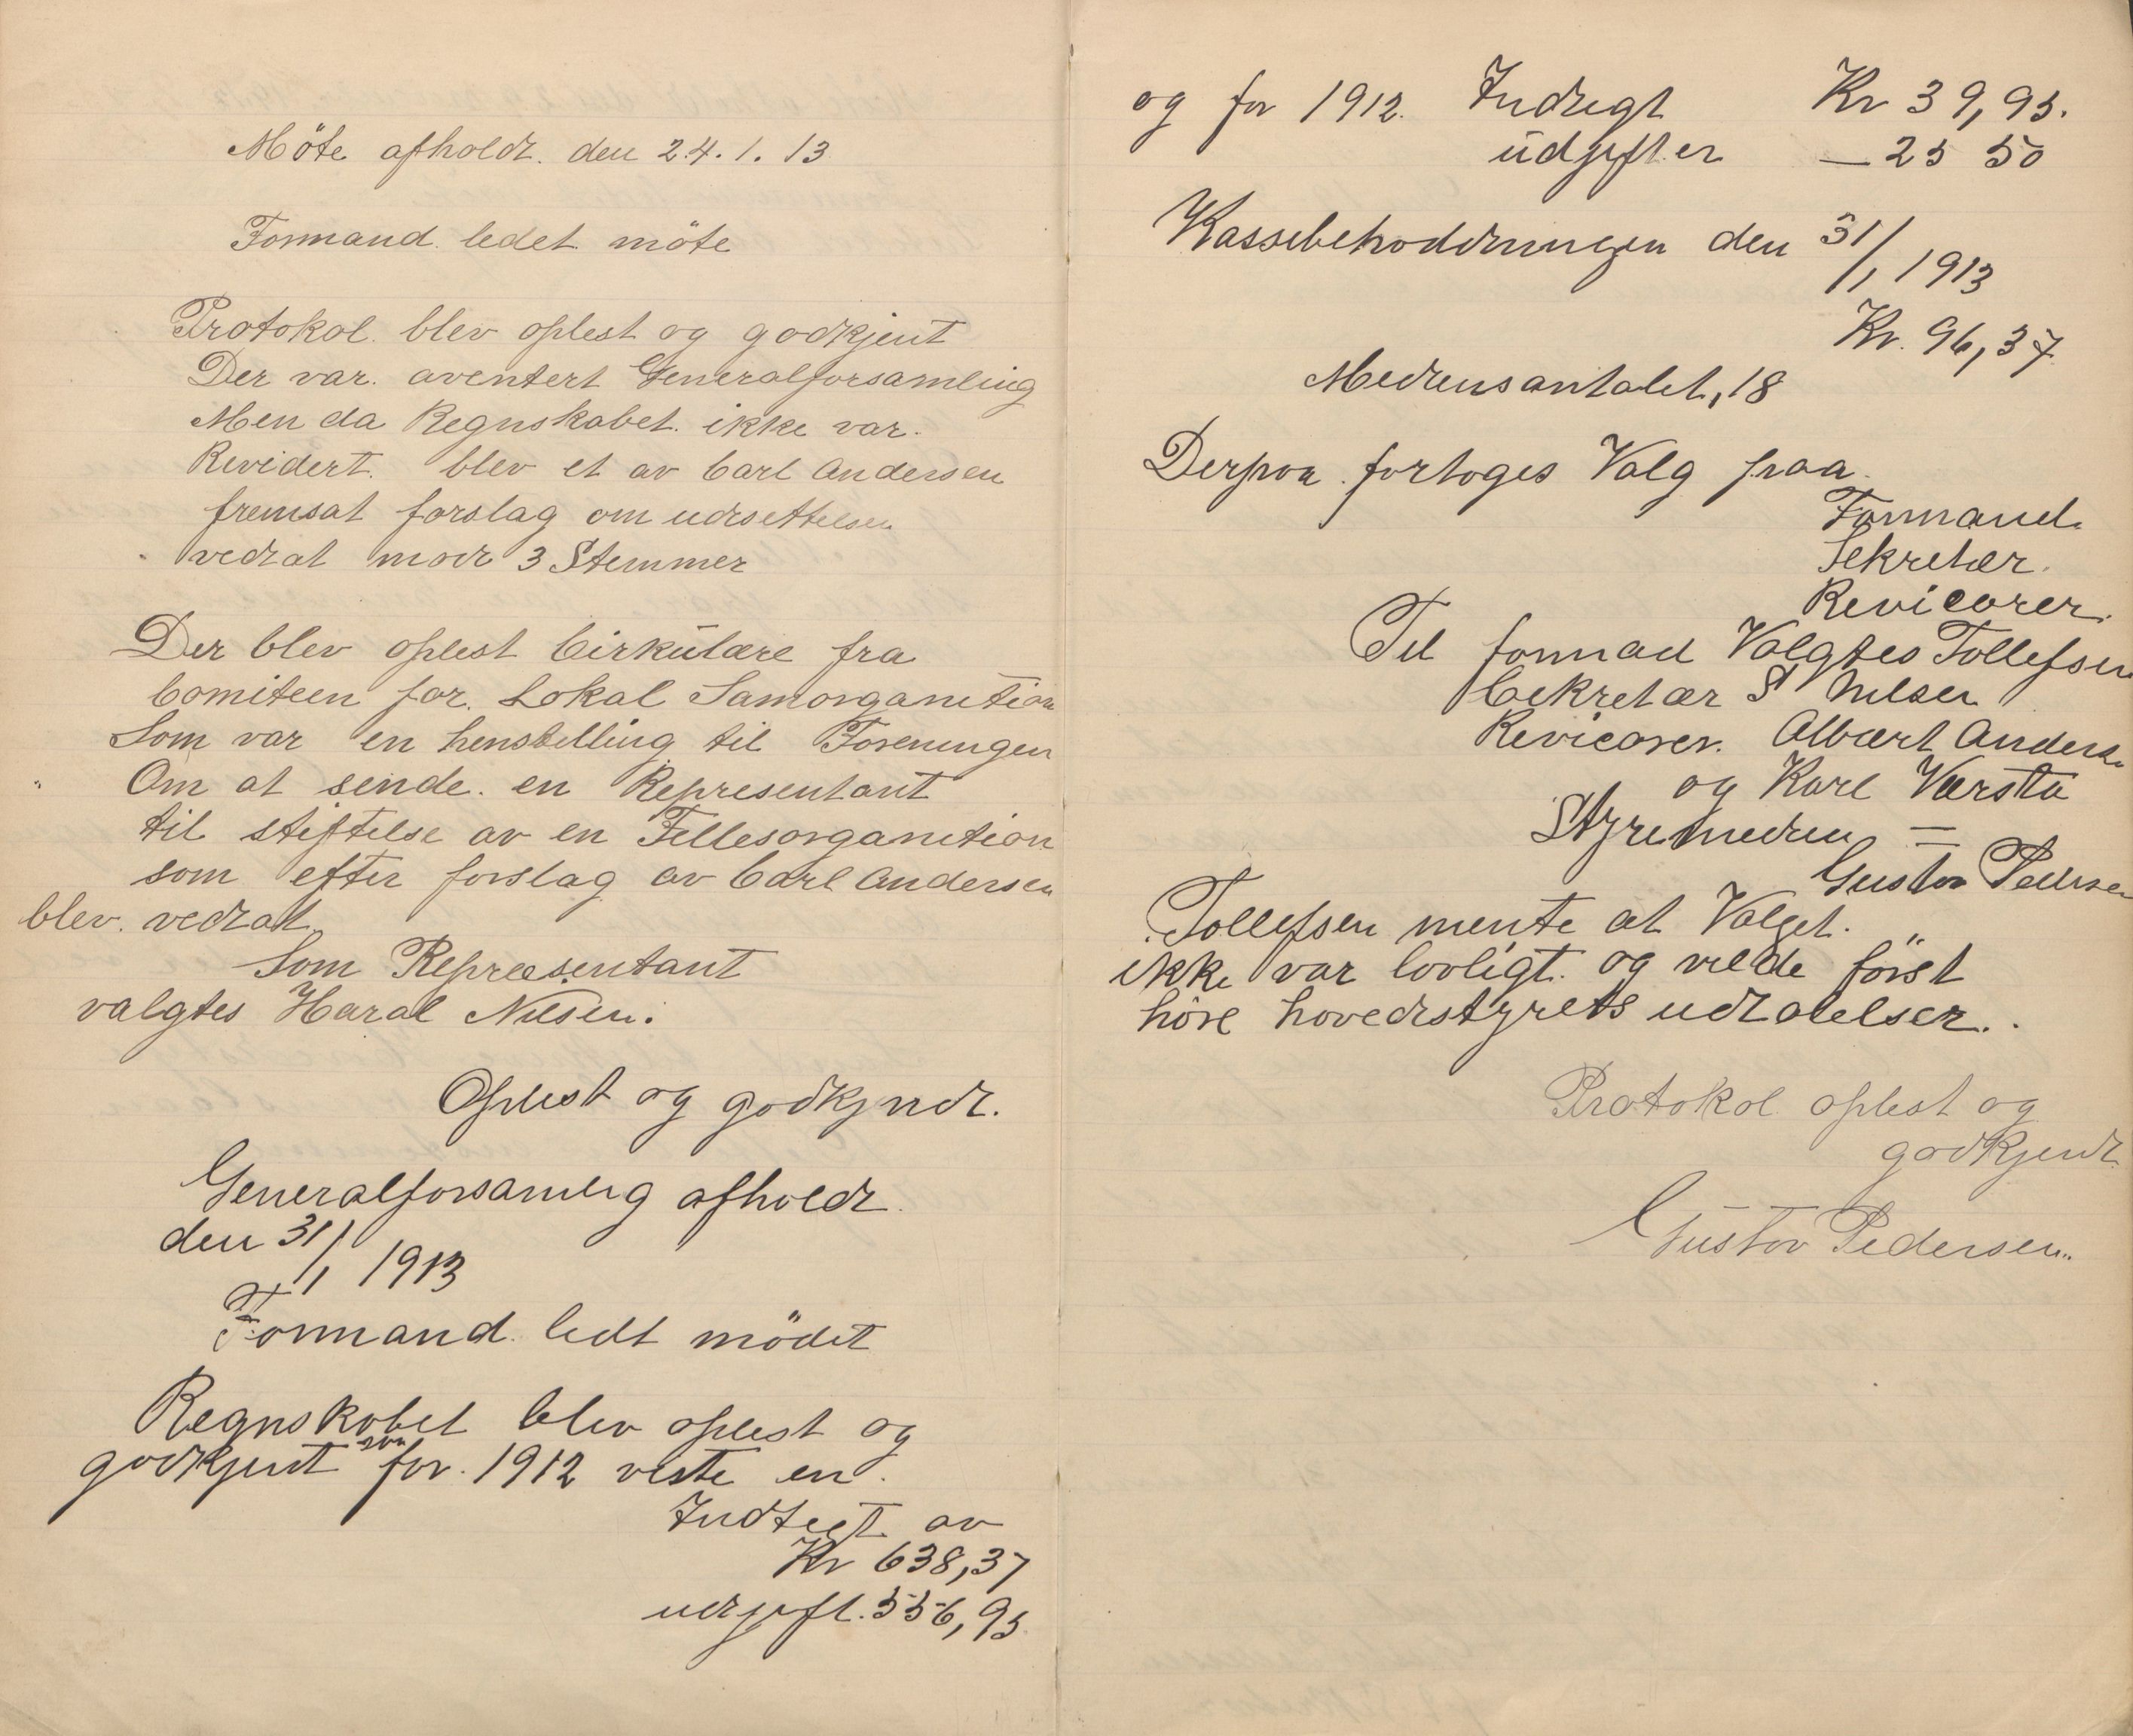 Möte afholdt. den 24.1.13
Formand. ledet möte
Protokol. blev oplest og godkjent
Der var. aventert Generalforsamling
Men da Regnskabet. ikke var.
Revidert. blev et av Carl Andersen
fremsat forslag om udsettelsen
vedtat mod 3 Stemmer
Der blev oplest Cirkulære fra
Comiteen for. Lokal Samorganition
Som var en henstilling til Foreningen
Om at sende. en Representant
til stiftelse av en Fellesorganition
som efter forslag av Carl Andersen
blev. vedtat.
Som Repræsentant
valgtes Haral Nilsen.
Oplest og godkjndt.
Generalforsamlig afholdt.
den 31/1 1913
Formand. ledt mödet
Regnskabet blev oplest og
godkjent som for. 1912 viste en.
Indtegt. av
Kr 638,37
udgift. 556,95
og for 1912. Indtegt Kr 39,95.
udgifter — 25 50
Kassebehoddningen den 31/1 1913
Kr. 96,37
Medlemsantalet, 18
Derpoa. fortoges Valg paa.
Formand.
Sekretær.
Revisorer.
Til formad Valgtes Tollefsen
Cekretær S Nilsen
Revisorer. Albært Anders
og Karl Værsta
Styremedlem =
Gustav Pedersen
Tollefsen mente at Valget.
ikke var lovligt. og vilde först
höre hovedstyrets udtalelser..
Protokol oplest og
godkjendt.
Gustav Pedersen..